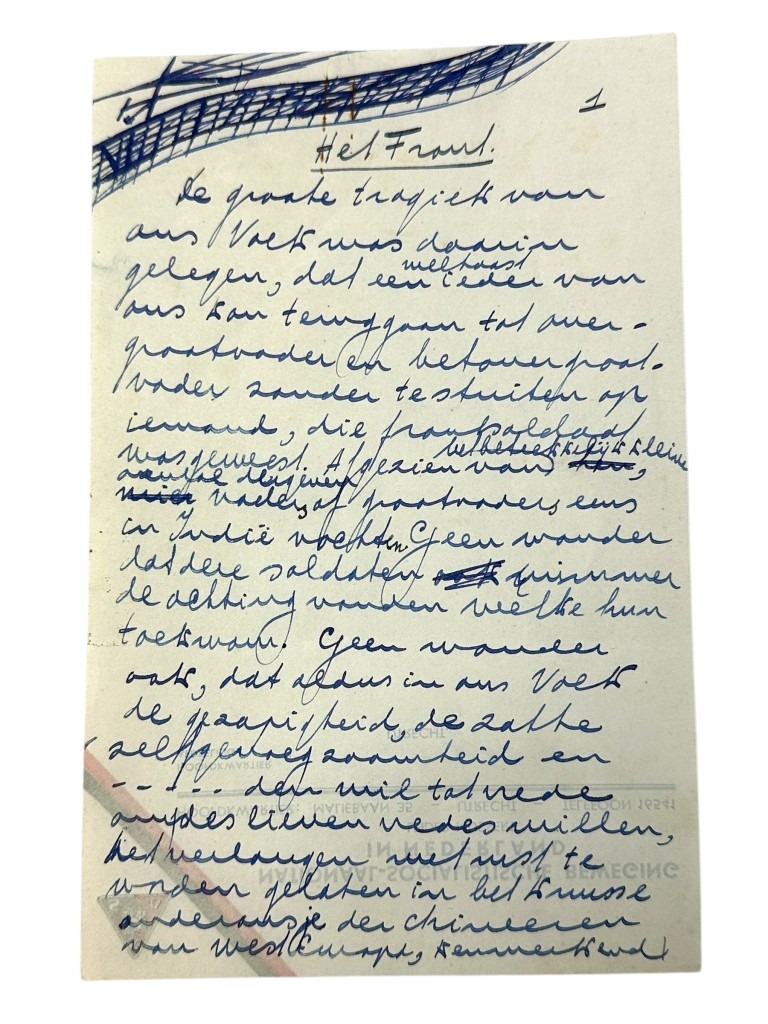 1
Het Front.
De groote tragiek van
ons Volk was daarin
gelegen, dat een welhaast ieder van
ons kon teruggaan tot over-
grootvader en betovergroot-
vader zonder te stuiten op
iemand, die frontsoldaat
was geweest. Afgezien van betrekkelijk kleine
aantal degenen
wier vaders of grootvaders eens
in Indië vochten. Geen wonder
dat deze soldaten nimmer
de achting vonden welke hun
toekwam. Geen wonder
ook, dat aldus in ons Volk
de gezapigheid, de zatte
zelfgenoegzaamheid en
- - - - - den wil tot vrede
om des lieven vredes willen,
het verlangen met rust te
worden gelaten in het knusse
onderonsje der chineezen
van West Europa, kenmerkend
UTRECHT
HOOFDKWARTIER
HOOFDKWARTIER: MALIEBAAN 35 - UTRECHT - TELEFOON 16541
IN NEDERLAND
NATIONAAL-SOCIALISTISCHE BEWEGING